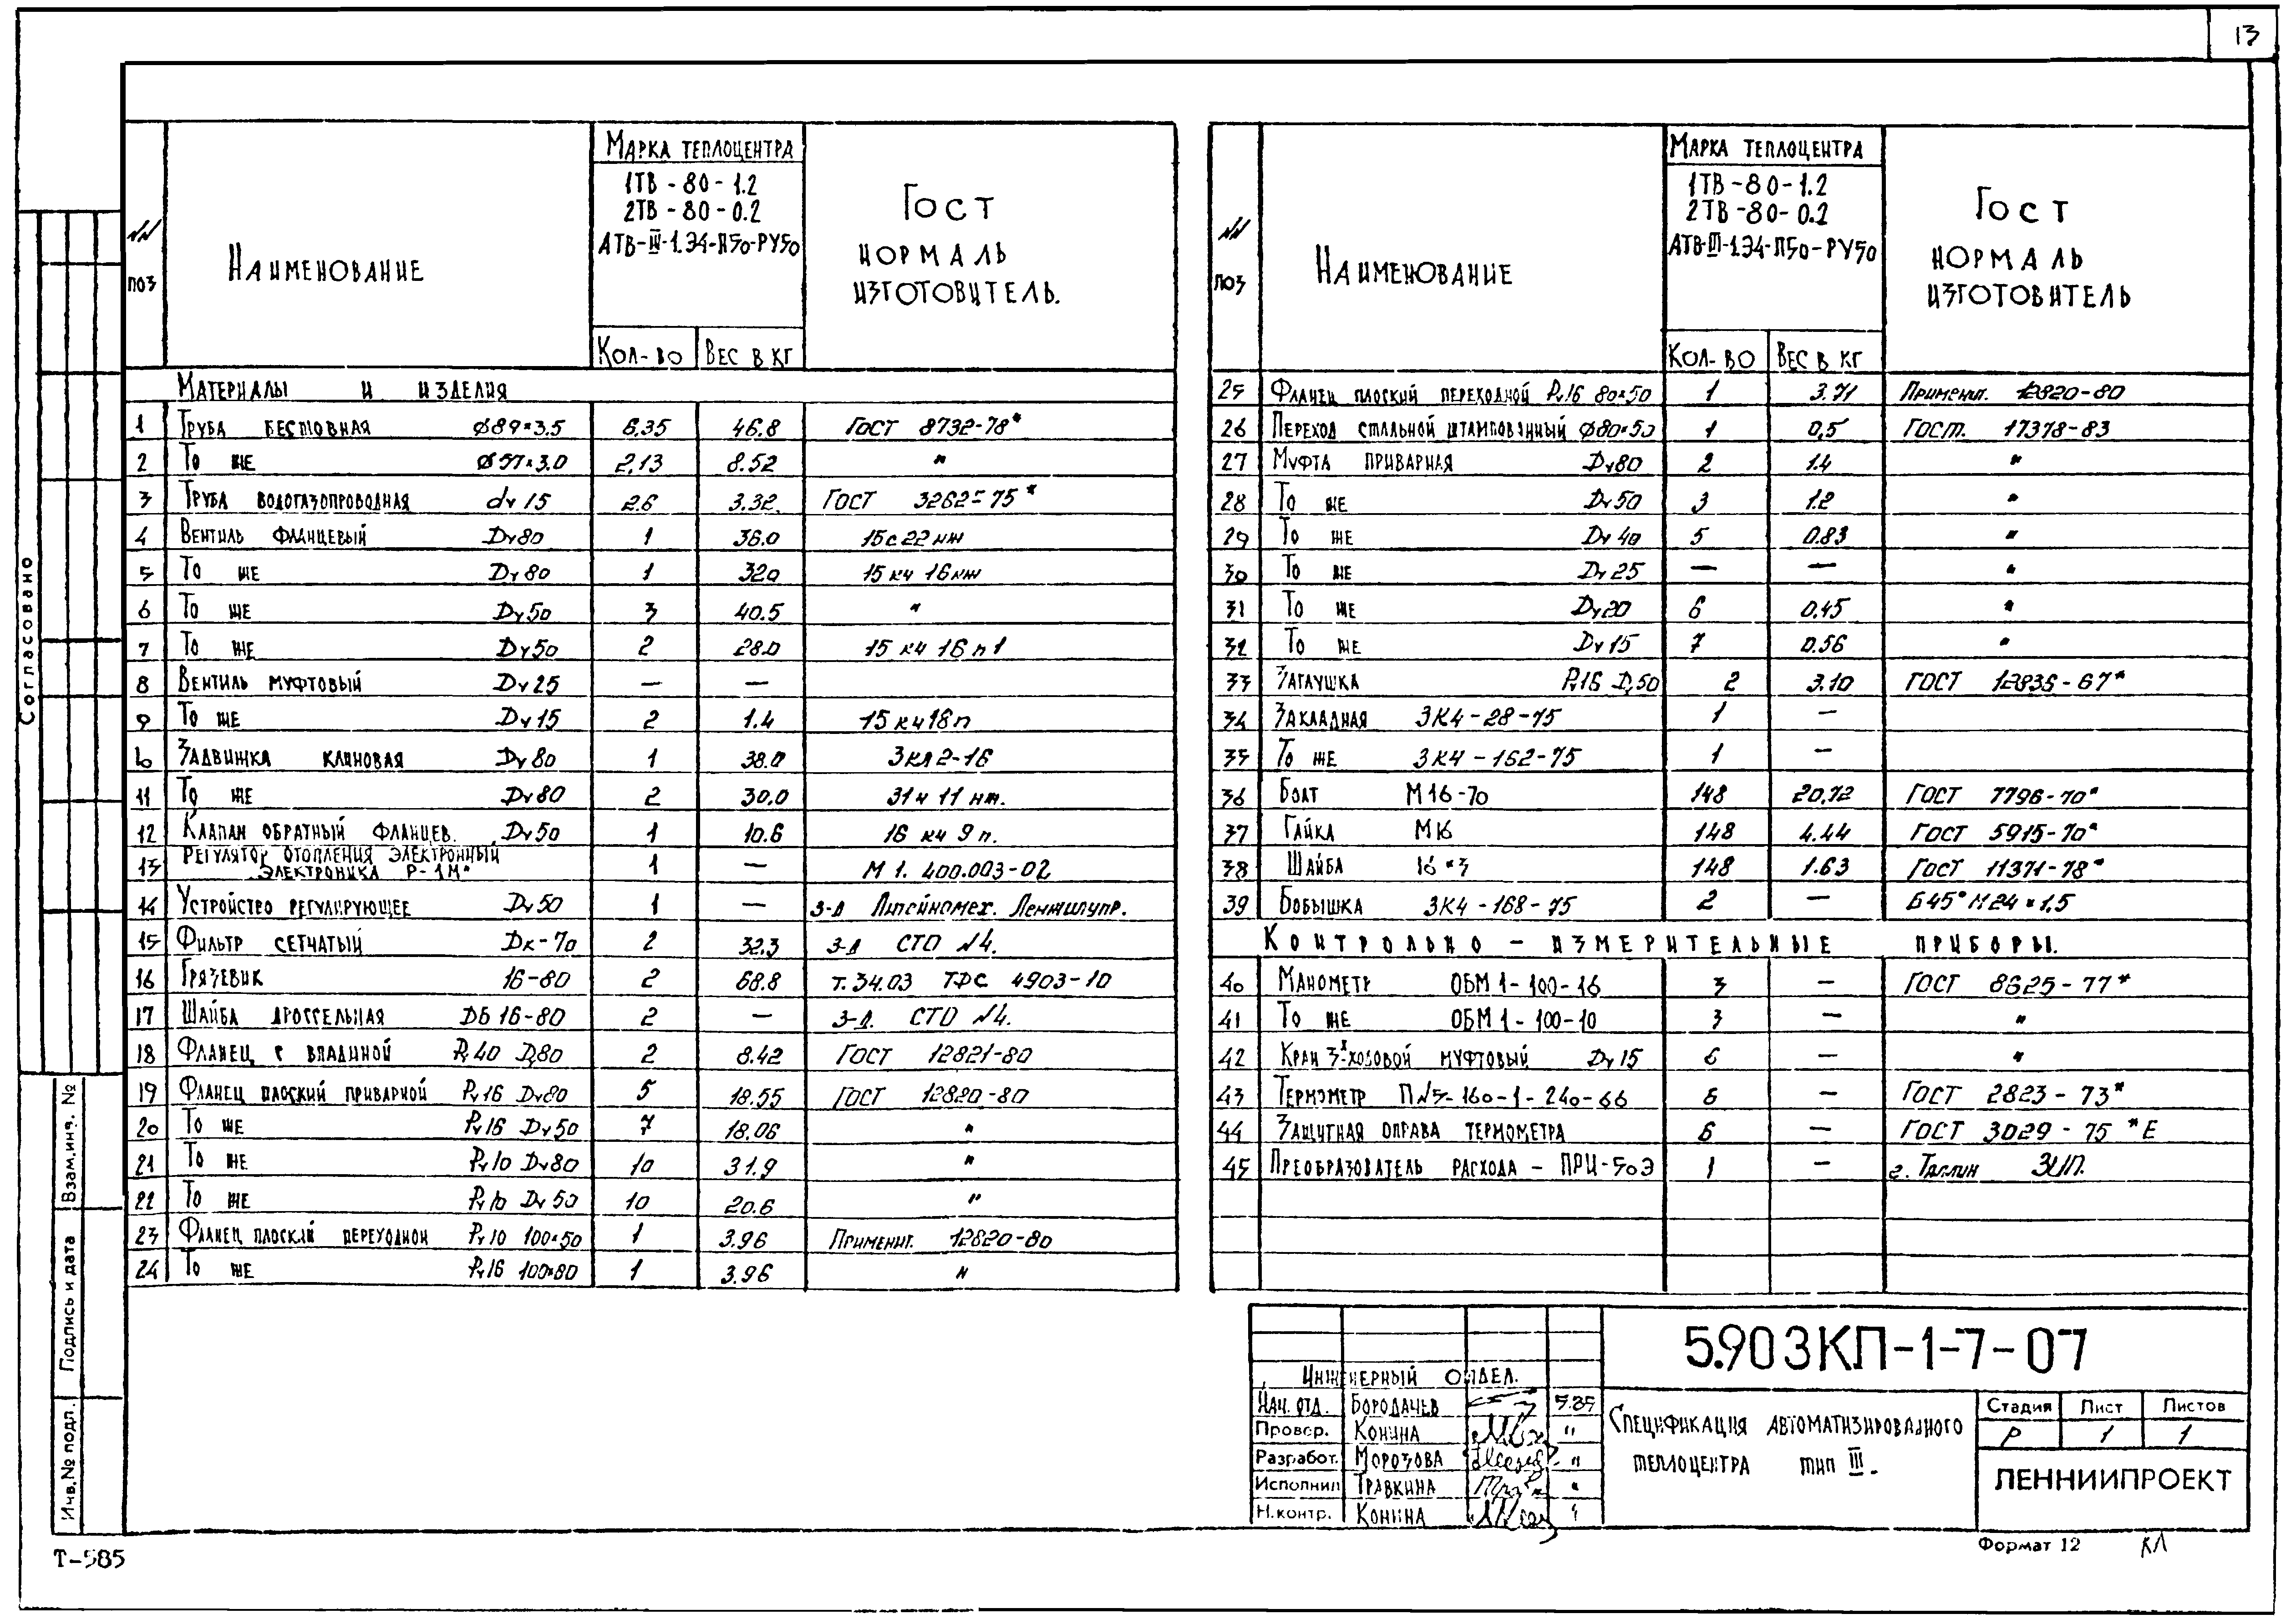 13
NN поз
Наименование
Марка теплоцентра
1ТВ-80-1.2
2ТВ-80-0.2
АТВ-III-1.Э4-П50-РУ50
Кол-во Вес в кг
Гост
нормаль
изготовитель.
Материалы и изделия
1 Труба бесшовная Ø89×3.5 6.35 46.8 Гост 8732-78*
2 То же Ø57×3.0 2.13 8.52 "
3 Труба водогазопроводная dу15 2.6 3.32 Гост 3262-75*
4 Вентиль фланцевый Dу80 1 36.0 15с22нж
5 То же Dу80 1 32.0 15кч16нж
6 То же Dу50 3 40.5 "
7 То же Dу50 2 28.0 15кч16п1
8 Вентиль муфтовый Dу25 — —
9 То же Dу15 2 1.4 15кч18п
10 Задвижка клиновая Dу80 1 38.0 ЗКЛ2-16
11 То же Dу80 2 30.0 31ч11нж.
12 Клапан обратный фланцев. Dу50 1 10.6 16кч9п.
13 Регулятор отопления электронный 1 — М1.400.003-02
"Электроника Р-1М"
14 Устройство регулирующее Dу50 1 — з-д Литейномех. Ленжилупр.
15 Фильтр сетчатый Dк-70 2 32.3 з-д СТО N4.
16 Грязевик 16-80 2 68.8 т.34.03 ТДС 4903-10
17 Шайба дроссельная ДБ16-80 2 — з-д. СТО N4.
18 Фланец с впадиной Ру40 Dу80 2 8.42 Гост 12821-80
19 Фланец плоский приварной Ру16 Dу80 5 18.55 Гост 12820-80
20 То же Ру16 Dу50 7 18.06 "
21 То же Ру10 Dу80 10 31.9 "
22 То же Ру10 Dу50 10 20.6 "
23 Фланец плоский переходной Ру10 100×50 1 3.96 Применит. 12820-80
24 То же Ру16 100×80 1 3.96 "
NN поз
Наименование
Марка теплоцентра
1ТВ-80-1.2
2ТВ-80-0.2
АТВ-III-1.Э4-П50-РУ50
Кол-во Вес в кг
Гост
нормаль
изготовитель
25 Фланец плоский переходной Ру16 80×50 1 3.71 Применит. 12820-80
26 Переход стальной штампованный Ø80×50 1 0,5 Гост. 17378-83
27 Муфта приварная Dу80 2 1.4 "
28 То же Dу50 3 1.2 "
29 То же Dу40 5 0.83 "
30 То же Dу25 — — "
31 То же Dу20 6 0.45 "
32 То же Dу15 7 0.56 "
33 Заглушка Ру16 Dу50 2 3.10 Гост 12836-67*
34 Закладная ЗК4-28-75 1 —
35 То же ЗК4-162-75 1 —
36 Болт М16-70 148 20,72 Гост 7796-70*
37 Гайка М16 148 4.44 Гост 5915-70*
38 Шайба 16×3 148 1.63 Гост 11371-78*
39 Бобышка ЗК4-168-75 2 — Б45° М24×1,5
Контрольно-измерительные приборы.
40 Манометр ОБМ1-100-16 3 — Гост 8625-77*
41 То же ОБМ1-100-10 3 — "
42 Кран 3х-ходовой муфтовый Dу15 6 — "
43 Термометр ПN5-160-1-240-66 6 — Гост 2823-73*
44 Защитная оправа термометра 6 — Гост 3029-75*Е
45 Преобразователь расхода – ПРИ-50Э 1 — г. Таллин ЗИП.
Согласовано
Взам.инв. №
Подпись и дата
Инв.№ подл.
Инженерный отдел.
Нач. отд. Бородачев 5.85
Провер. Конина "
Разработ. Морозова "
Исполнил Травкина "
Н.контр. Конина "
5.903КП-1-7-07
Спецификация автоматизированного
теплоцентра тип III.
Стадия Лист Листов
Р 1 1
ЛЕННИИПРОЕКТ
Т-585
Формат 12
КЛ